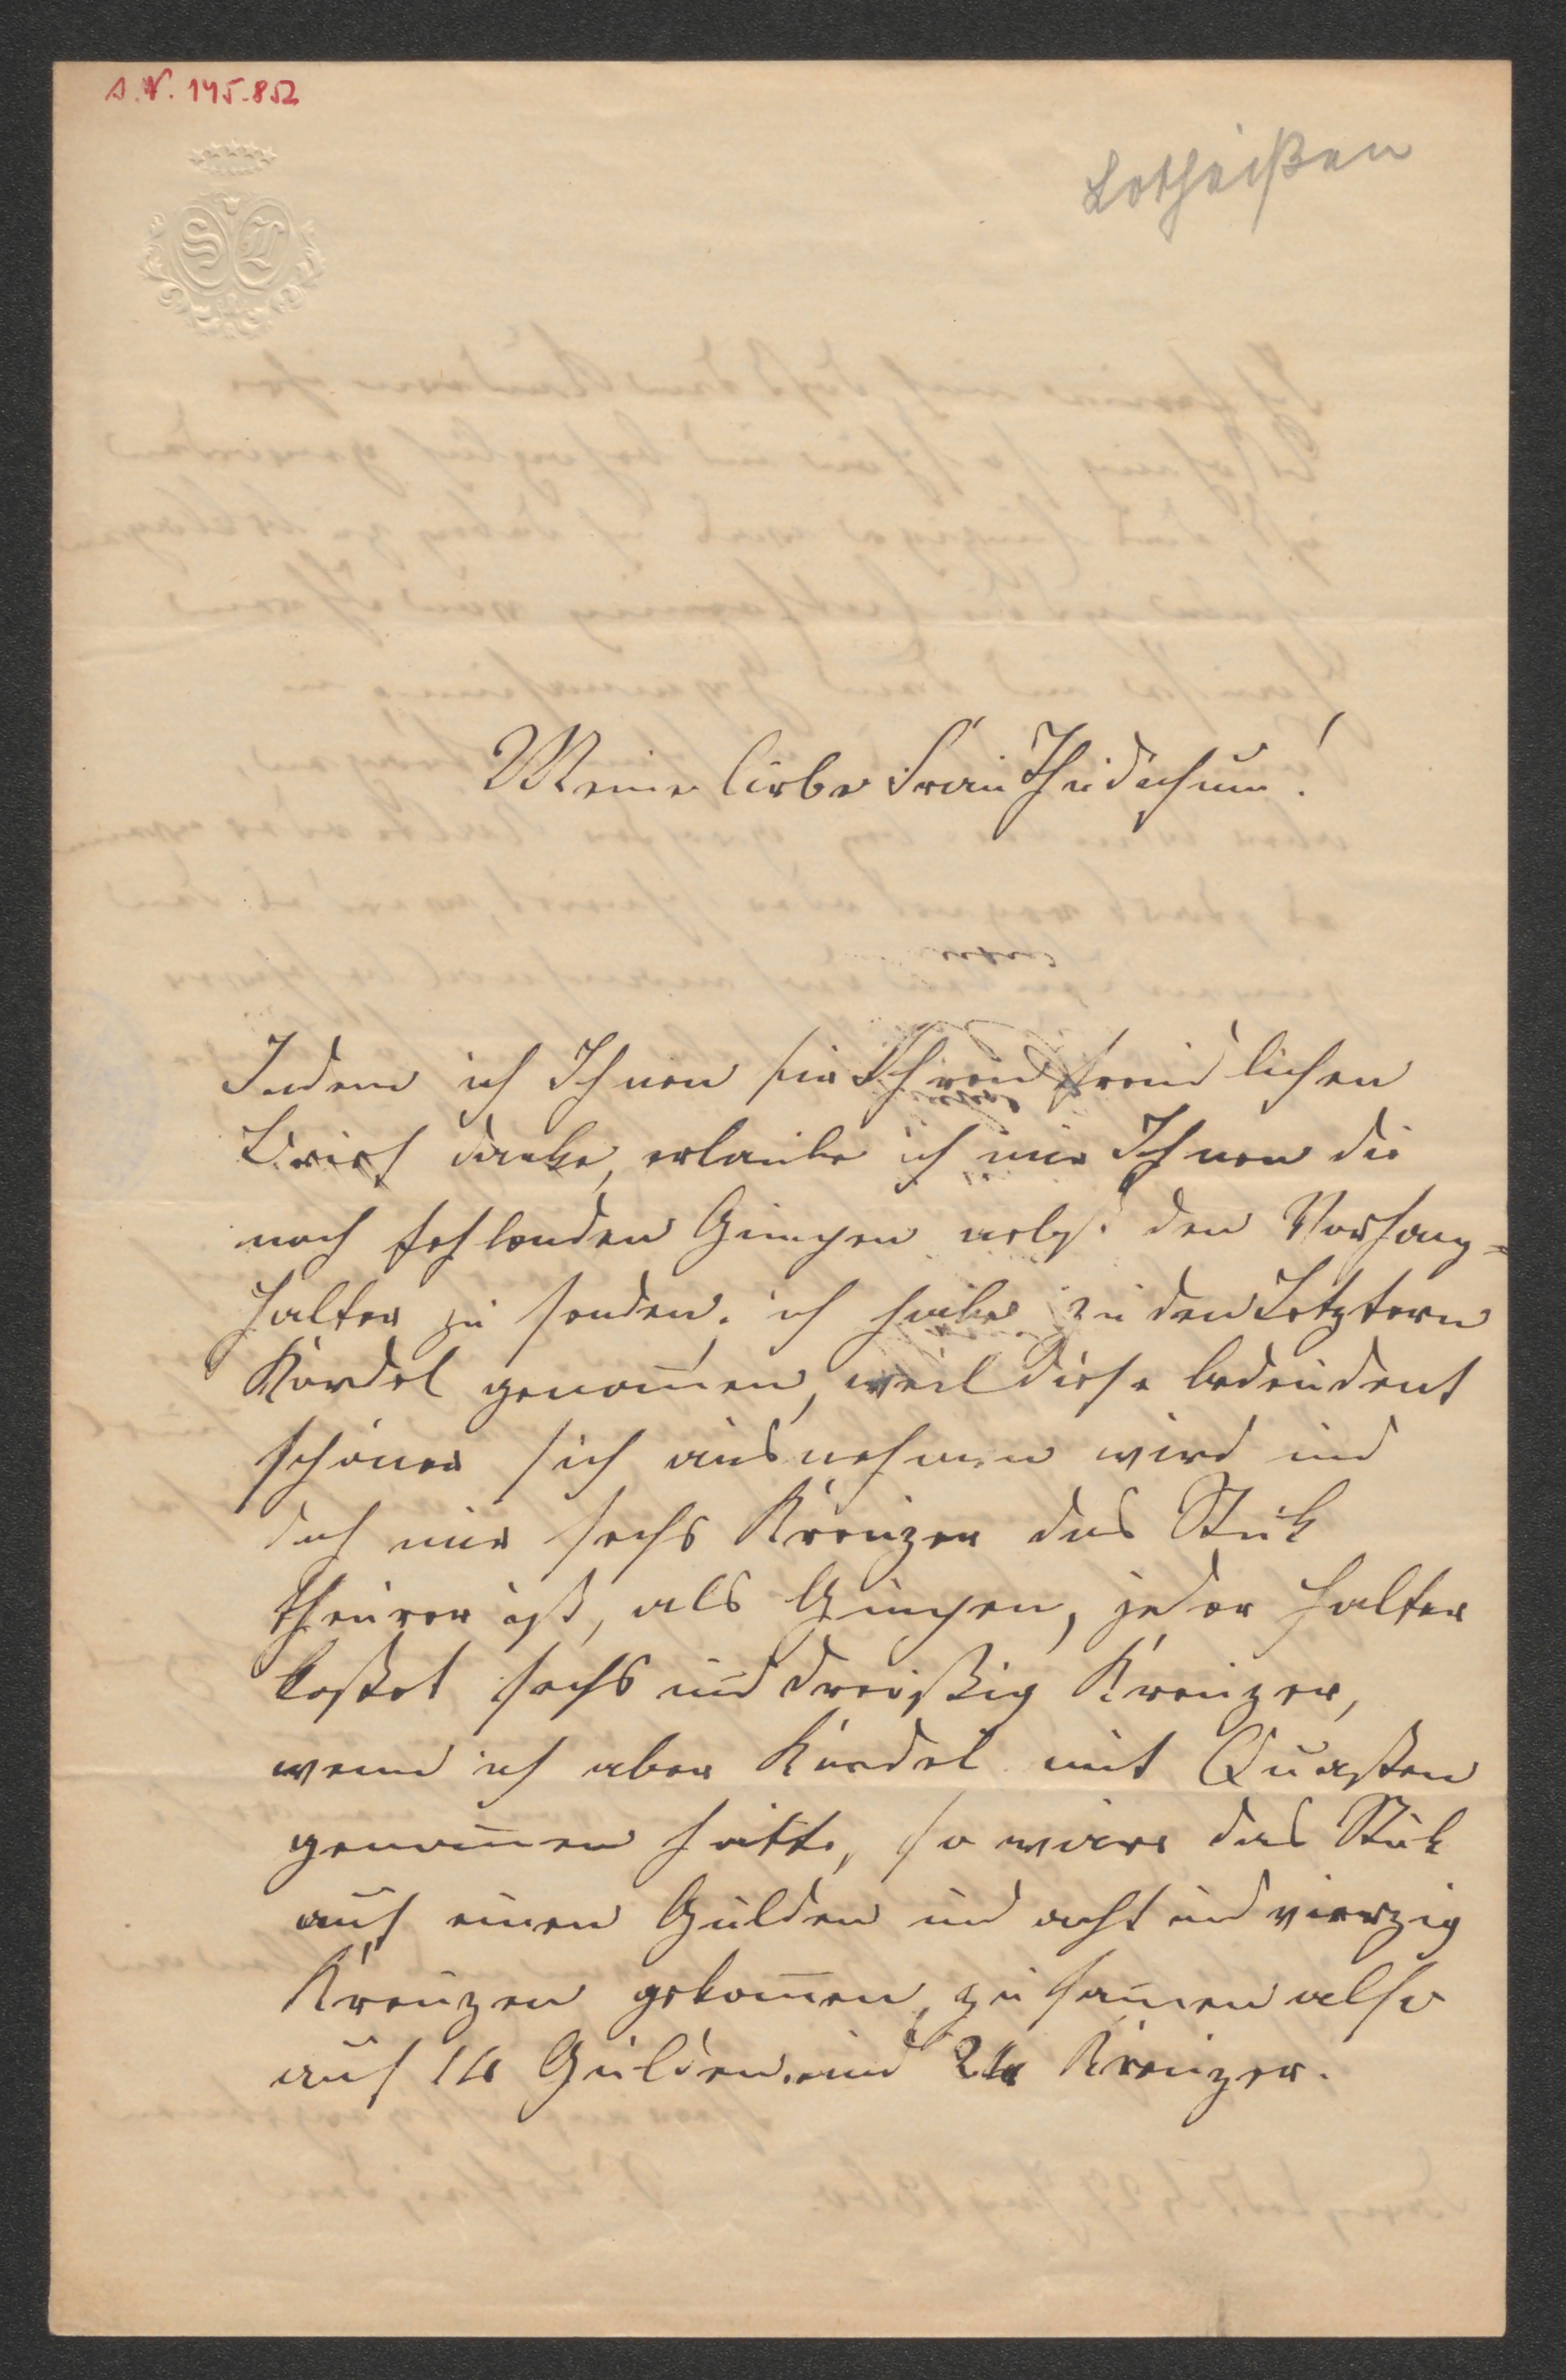 A.N. 145.852
Lotheißen
SL
Meine liebe Frau Thudichum!
Indem ich Ihnen für Ihren freundlichen
Brief danke, erlaube ich mir Ihnen die
noch fehlenden Gimpen nebst den Vorhang=
halter zu senden. ich habe zu den Letztern
Kordel genom̅en, weil diese bedeudent
schöner sich ausnehmen wird und
doch nur sechs Kreuzer das Stük
theurer ist, als Gimpen, jeder Halter
kostet sechs und dreißig Kreuzer,
wenn ich aber Kordel mit Quasten
genom̅en hätte, so wäre das Stük
auf einen Gulden und acht und vierzig
Kreuzer gekom̅en, zusam̅en also
auf 14 Gulden und 24 Kreuzer.